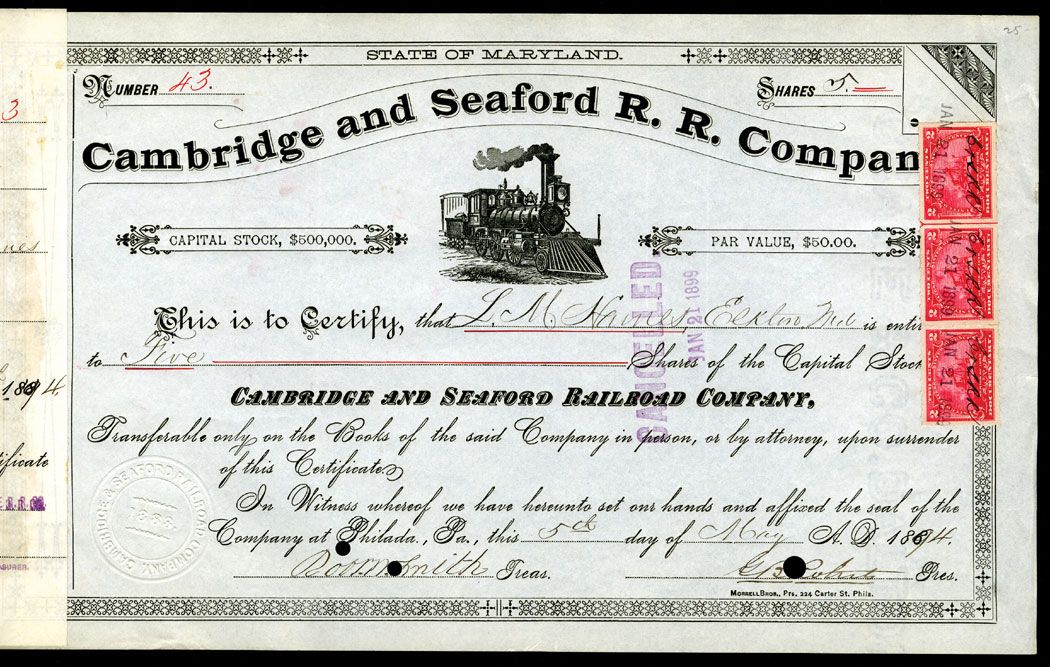 25
STATE OF MARYLAND.
NUMBER 43. SHARES 5.
3
Cambridge and Seaford R. R. Compan
CAPITAL STOCK, $500,000. PAR VALUE, $50.00.
JAN 21 1899
JAN 21 1899
JAN 21 1899
CANCELLED
JAN 21 1899
This is to Certify, that L. M. Haines, Elkton Md is enti
to Five Shares of the Capital Stock
1894
CAMBRIDGE AND SEAFORD RAILROAD COMPANY,
Transferable only on the Books of the said Company in person, or by attorney, upon surrender
of this Certificate.
tificate
In Witness whereof we have hereunto set our hands and affixed the seal of the
Company at Philada., Pa., this 5th day of May A.D. 1894.
CAMBRIDGE & SEAFORD RAILROAD COMPANY
1883
Smith Treas. Pres.
ASURER.
MORRELL BROS., Prs. 224 Carter St. Phila.